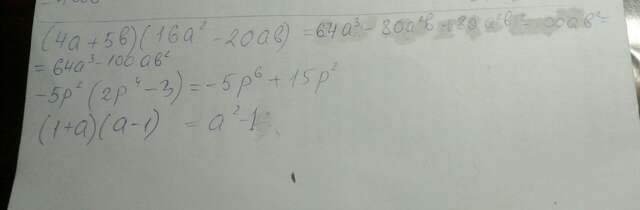 (4a+5b)(16a²-20ab) = 64a³-80a²b+80a²b-100ab²=
= 64a³-100ab²
-5p²(2p⁴-3)=-5p⁶+15p²
(1+a)(a-1) = a²-1